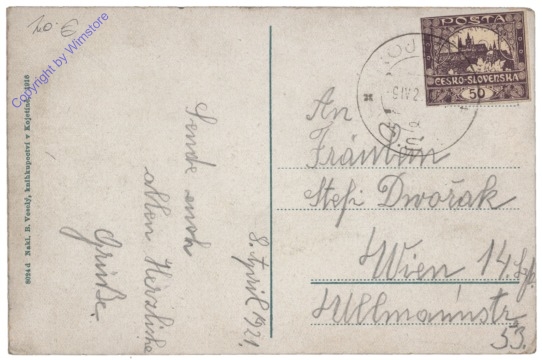 no. 6
Copyright by Wimstore
9024d Nakl. B. Veselý, knihkupectví v Kojetíně. 1916
Sende euch
allen Herzliche
Grüße.
8. April 1921.
POSTA
ČESKO-SLOVENSKA
50
KOJ
8 IV 2
An
Fräulein
Stefi Dwořak
Wien 14.
Ullmannstr
53.